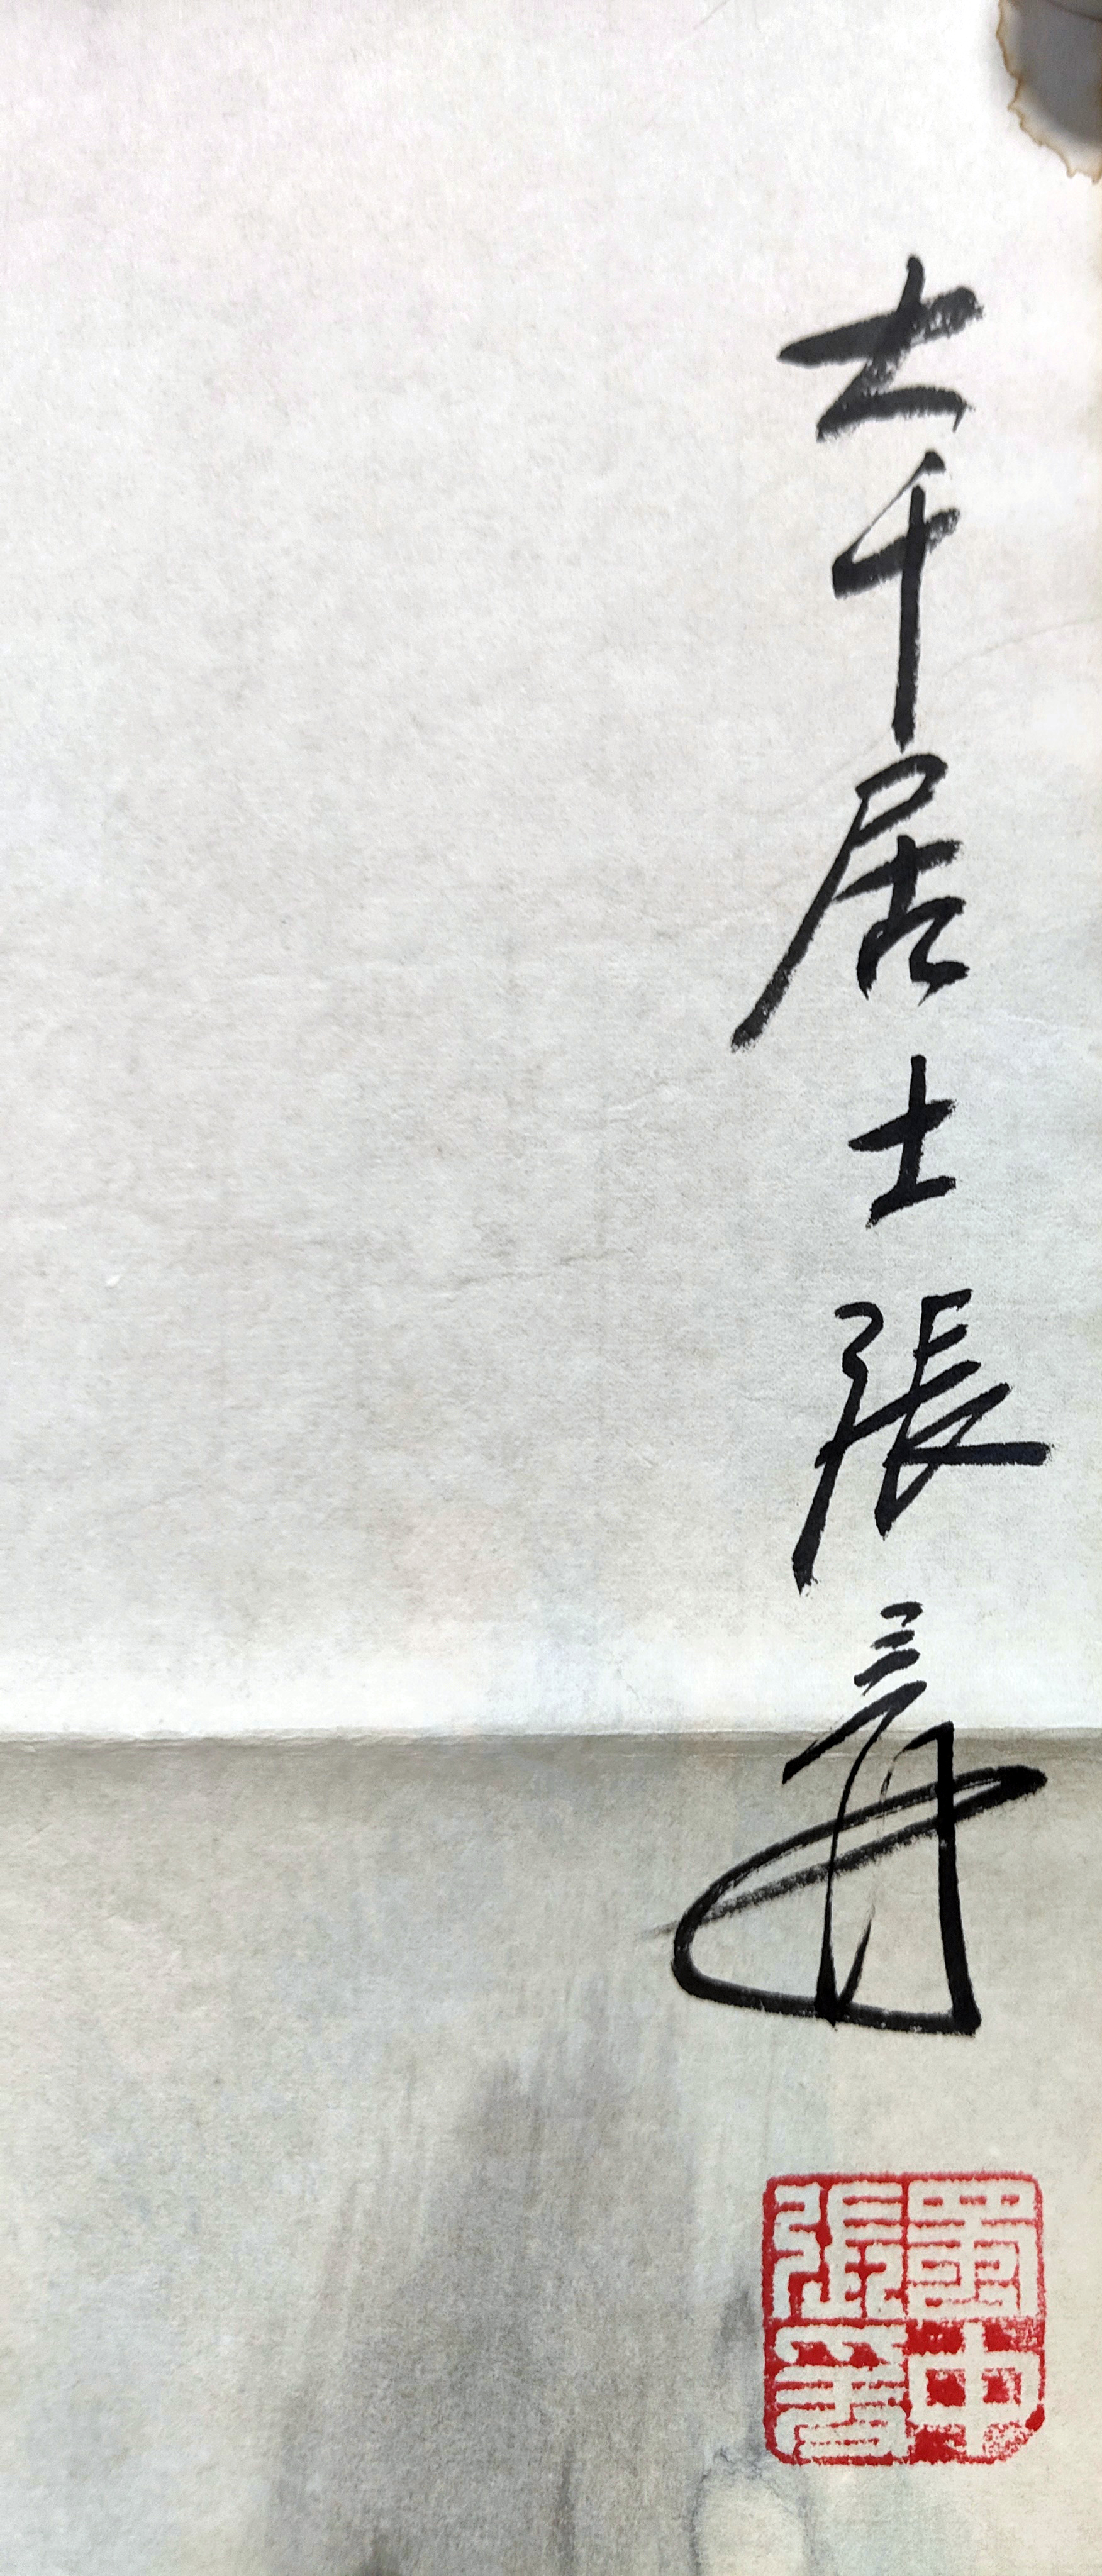 大千居士張爰
蜀中
張爰